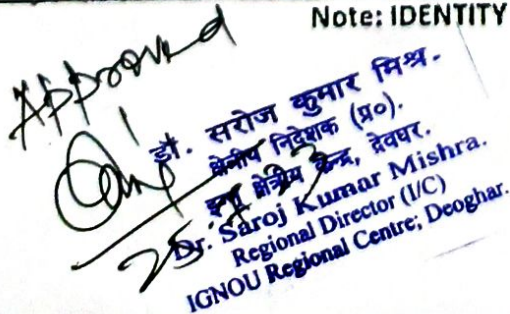 Note: IDENTITY
Approved
डॉ. सरोज कुमार मिश्र.
क्षेत्रीय निदेशक (प्र०).
क्षेत्रीय केन्द्र, देवघर.
Dr. Saroj Kumar Mishra.
Regional Director (I/C)
IGNOU Regional Centre; Deoghar.